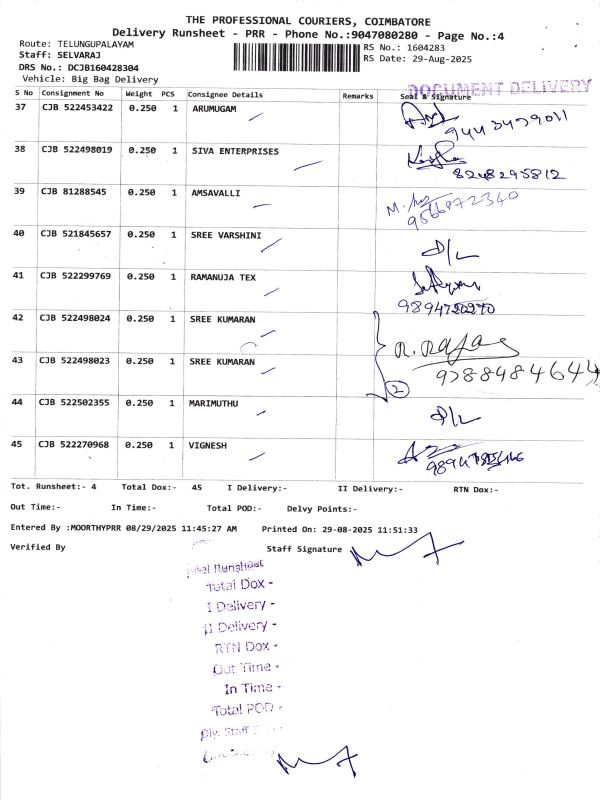 THE PROFESSIONAL COURIERS, COIMBATORE
Delivery Runsheet - PRR - Phone No.:9047080280 - Page No.:4
Route: TELUNGUPALAYAM
Staff: SELVARAJ
DRS No.: DCJB160428304
Vehicle: Big Bag Delivery
RS No.: 1604283
RS Date: 29-Aug-2025
DOCUMENT DELIVERY
S No Consignment No Weight PCS Consignee Details Remarks Seal & Signature
37 CJB 522453422 0.250 1 ARUMUGAM
9443479011
38 CJB 522498019 0.250 1 SIVA ENTERPRISES
8248295812
39 CJB 81288545 0.250 1 AMSAVALLI
9566872340
40 CJB 521845657 0.250 1 SREE VARSHINI D/L
41 CJB 522299769 0.250 1 RAMANUJA TEX
42 CJB 522498024 0.250 1 SREE KUMARAN
R. Rajas
43 CJB 522498023 0.250 1 SREE KUMARAN
2
44 CJB 522502355 0.250 1 MARIMUTHU D/L
45 CJB 522270968 0.250 1 VIGNESH
Tot. Runsheet:- 4 Total Dox:- 45 I Delivery:- II Delivery:- RTN Dox:-
Out Time:- In Time:- Total POD:- Delvy Points:-
Entered By :MOORTHYPRR 08/29/2025 11:45:27 AM Printed On: 29-08-2025 11:51:33
Verified By Staff Signature
Total Runsheet
Total Dox -
I Delivery -
II Delivery -
RTN Dox -
Out Time -
In Time -
Total POD -
Dly. Staff